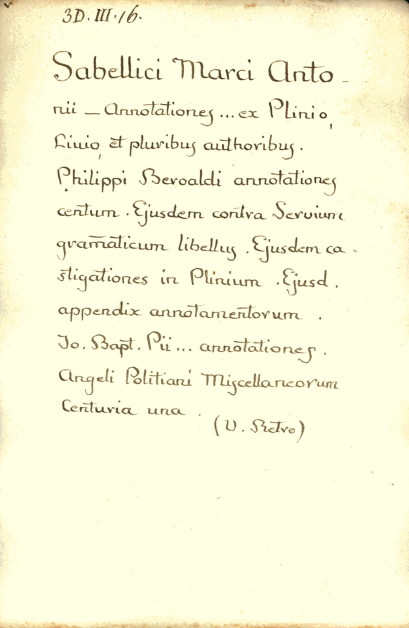 3D. III. 16.
Sabellici Marci Anto-
nii — Annotationes ... ex Plinio,
Liuio, et pluribus authoribus.
Philippi Beroaldi annotationes
centum. Ejusdem contra Seruium
gram̄aticum libellus. Ejusdem ca-
stigationes in Plinium. Ejusd.
appendix annotamentorum.
Jo. Bapt. Pii ... annotationes.
Angeli Politiani Miscellaneorum
Centuria una.
(V. Retro)